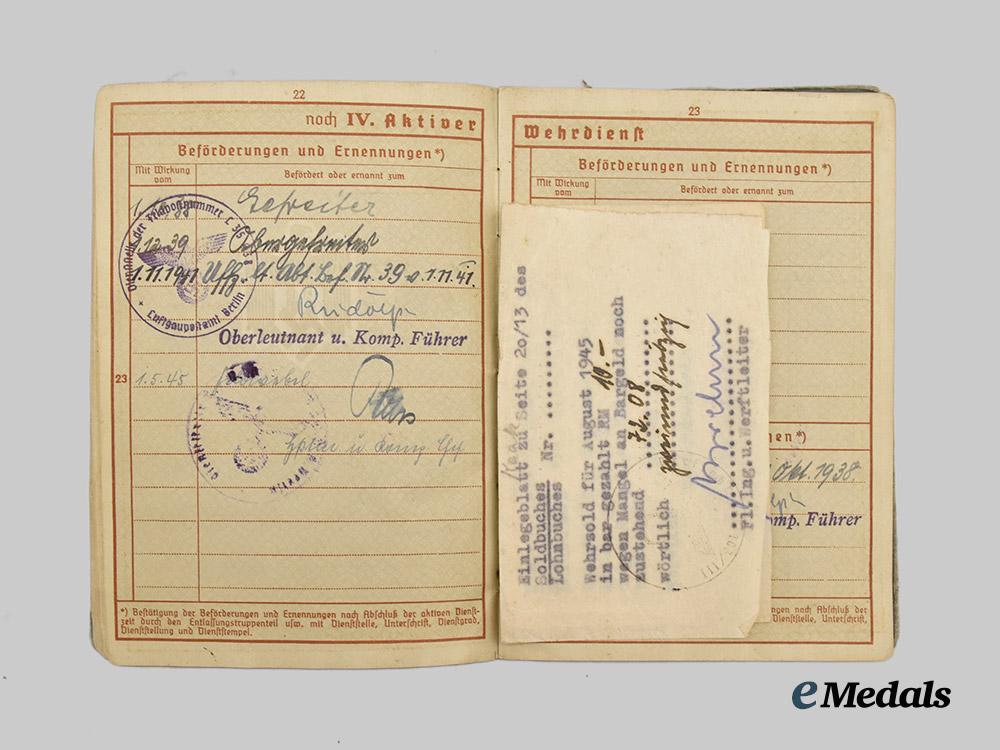 22
noch IV. Aktiver
Beförderungen und Ernennungen*)
Mit Wirkung vom
Befördert oder ernannt zum
Gefreiter
1.12.39 Obergefreiter
1.11.1941 Uffz. lt. Abt. Bef. Nr. 39 v. 1.11.41.
Rudolph
Oberleutnant u. Komp. Führer
23 1.5.45 Feldwebel
Hptm u. Komp. Chef
Dienststelle der Feldpostnummer L
Luftgaupostamt Berlin
*) Bestätigung der Beförderungen und Ernennungen nach Abschluß der aktiven Dienst-
zeit durch den Entlassungstruppenteil usw. mit Dienststelle, Unterschrift, Dienstgrad,
Dienststellung und Dienststempel.
23
Wehrdienst
Beförderungen und Ernennungen*)
Mit Wirkung vom
Befördert oder ernannt zum
Einlegeblatt zu Seite 20/13 des
Soldbuches Nr. ..........
Lohnbuches
Wehrsold für August 1945
in bar gezahlt RM 10.-
wegen Mangel an Bargeld noch
zustehend 72.08
wörtlich
Fl.Ing.u.Werftleiter
en*)
Okt. 1938.
omp. Führer
ngen nach Abschluß der
Dienststelle, Unterschrift,
eMedals